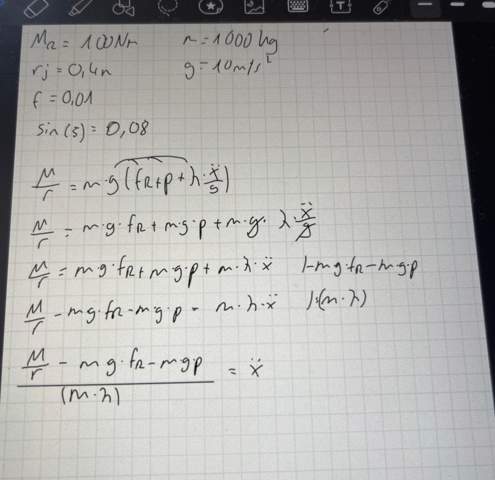 M_R = 100Nm m = 1000 kg
r_j = 0,4m g = 10 m/s²
f = 0,01
sin(5) = 0,08
M/r = m·g(f_R + p + λ·ẍ/g)
M/r = m·g·f_R + m·g·p + m·g·λ·ẍ/g
M/r = mg·f_R + mg·p + m·λ·ẍ |-mg·f_R - mg·p
M/r - mg·f_R - mg·p = m·λ·ẍ |:(m·λ)
(M/r - mg·f_R - mgp)/(m·λ) = ẍ